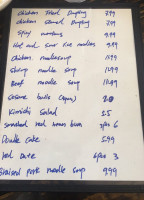 chicken Fried Dumpling 7.99
chicken steamed Dumpling 7.99
Spicy wontons 9.99
Hot and sour rice noodles 9.99
chicken noodle soup 11.99
Shrimp noodle soup 11.99
Beef noodle soup 11.99
sesame balls
Kimichi Salad 2.5
smoked red bean bun 6
Double cake 5.99
red Date 6 for 3
Braised pork noodle soup 9.99